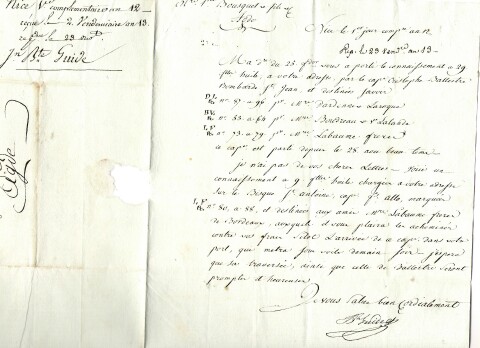 Nice 1er complémentaire an 12
reçue le 2. Vendémiaire an 13
Rép. le 23 do
Jn Bte Guide
Agde
Mrs Bousquet & fils
Agde
Nice le 1er jour compre an 12.
Rep. le 23 vend.re an 13
Ma dre du 23 fdor vous a porté le connaissement a 29
fles huile, a votre adresse par le cape Cristophe Ballestre
Bombarde St Jean, et destinées Savoir
no. 87 a 96 pr Mrs Dardenne Laroque
no. 55 a 60 pr Mrs Boudreau & Vr Lalande
no. 73 a 79 pr Mrs Labaume freres
ce cape est parti depuis le 28. avec beau tems.
je n'ai pas de vos cheres Lettres - Joint un
connaissement a 9 fles huile chargées a votre adresse
Sur le Besque St antoine, cape
no 80 a 88, et destinées aux amis Mrs Labaume freres
de Bordeaux, auxquels il vous plaira les acheminer
contre vos frais Sitot L'arrivée de ce cape dans votre
port, que metra Sous voile demain Soir j'espere
que sa traversée, ainsi que celle de Ballestre Seront
promptes & heureuses
Je vous Salue bien Cordialement
Jn Bte Guide